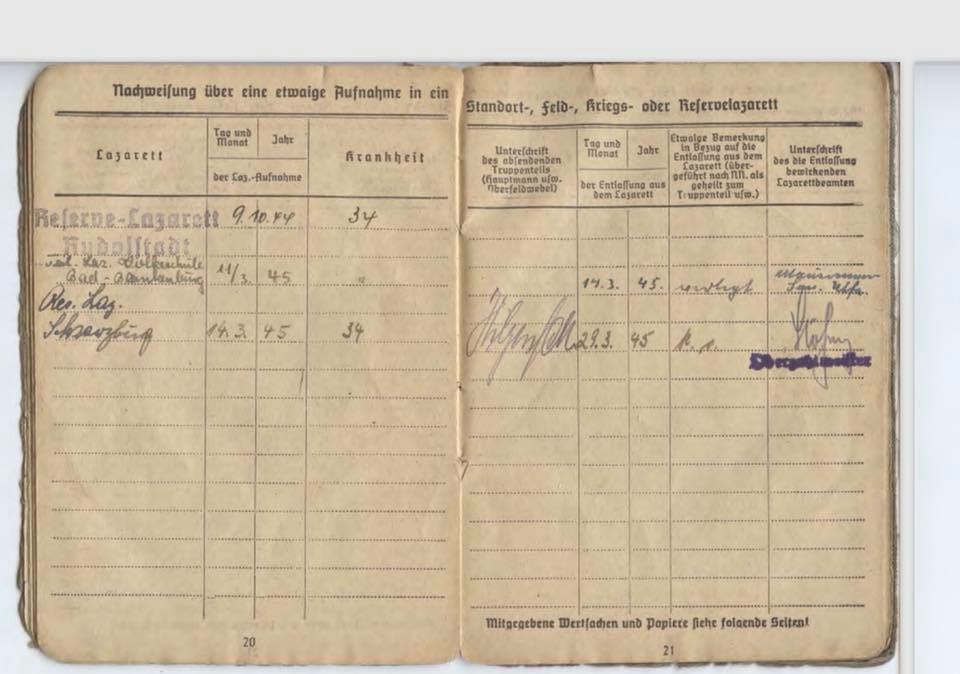 Nachweisung über eine etwaige Aufnahme in ein
Standort-, Feld-, Kriegs- oder Reservelazarett
Lazarett
Tag und Monat
Jahr
der Laz.-Aufnahme
Krankheit
Unterschrift
des absendenden
Truppenteils
(Hauptmann usw.
Oberfeldwebel)
Tag und
Monat
Jahr
der Entlassung aus
dem Lazarett
Etwaige Bemerkung
in Bezug auf die
Entlassung aus dem
Lazarett (über-
geführt nach NN. als
geheilt zum
Truppenteil usw.)
Unterschrift
des die Entlassung
bewirkenden
Lazarettbeamten
Reserve-Lazarett 9.10.44 34
Rudolstadt
Laz.
Bad-Blankenburg 11/3. 45 "
14.3. 45. verlegt
Res. Laz.
Schwarzburg 14.3. 45 34
29.3. 45
Oberzahlmeister
Mitgegebene Wertsachen und Papiere siehe folgende Seiten!
20
21